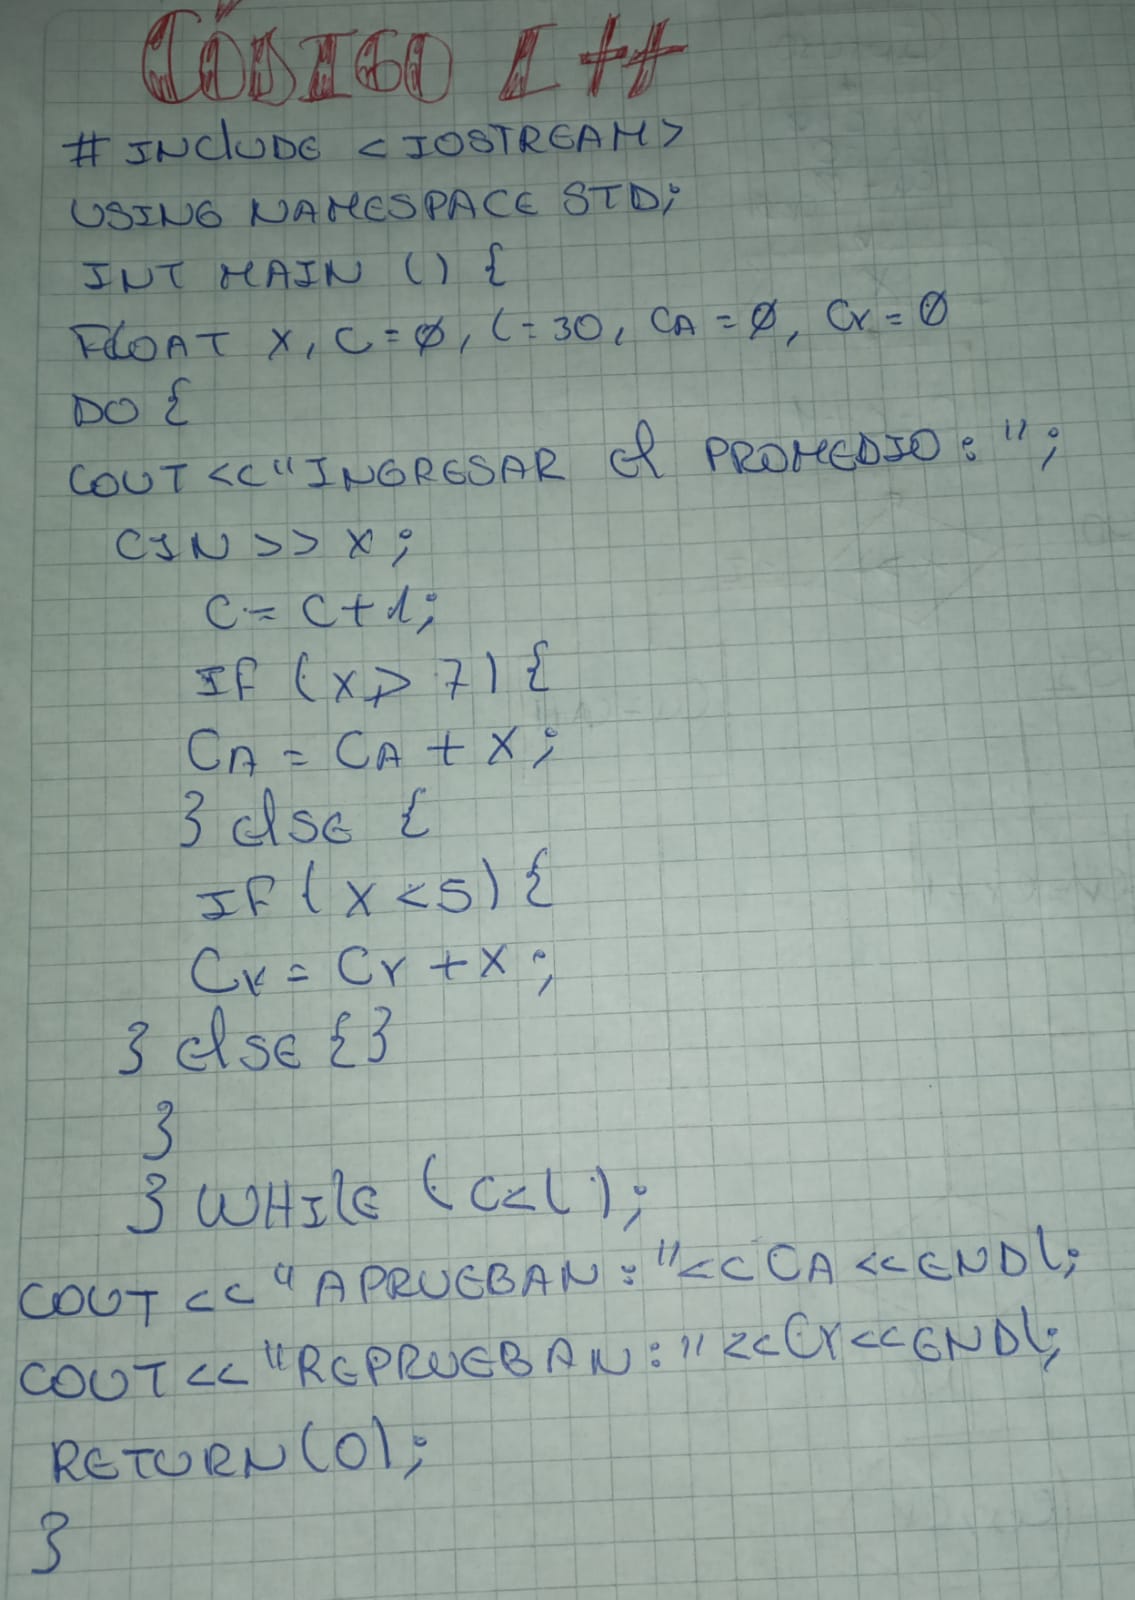 CÓDIGO C++
# INClUDE <IOSTREAM>
USING NAMESPACE STD;
INT MAIN () {
FLOAT X, C=Ø, l=30, CA=Ø, Cr=Ø
DO {
COUT <<"INGRESAR El PROMEDIO: ";
CIN >> X;
C= C+1;
IF (X > 7) {
CA = CA + X;
} ElSE {
IF (X < 5) {
Cr = Cr + X;
} ElSE {}
}
} WHIlE (C<l);
COUT << "APRUEBAN: "<< CA << ENDl;
COUT << "REPRUEBAN: " << Cr << ENDl;
RETURN (0);
}